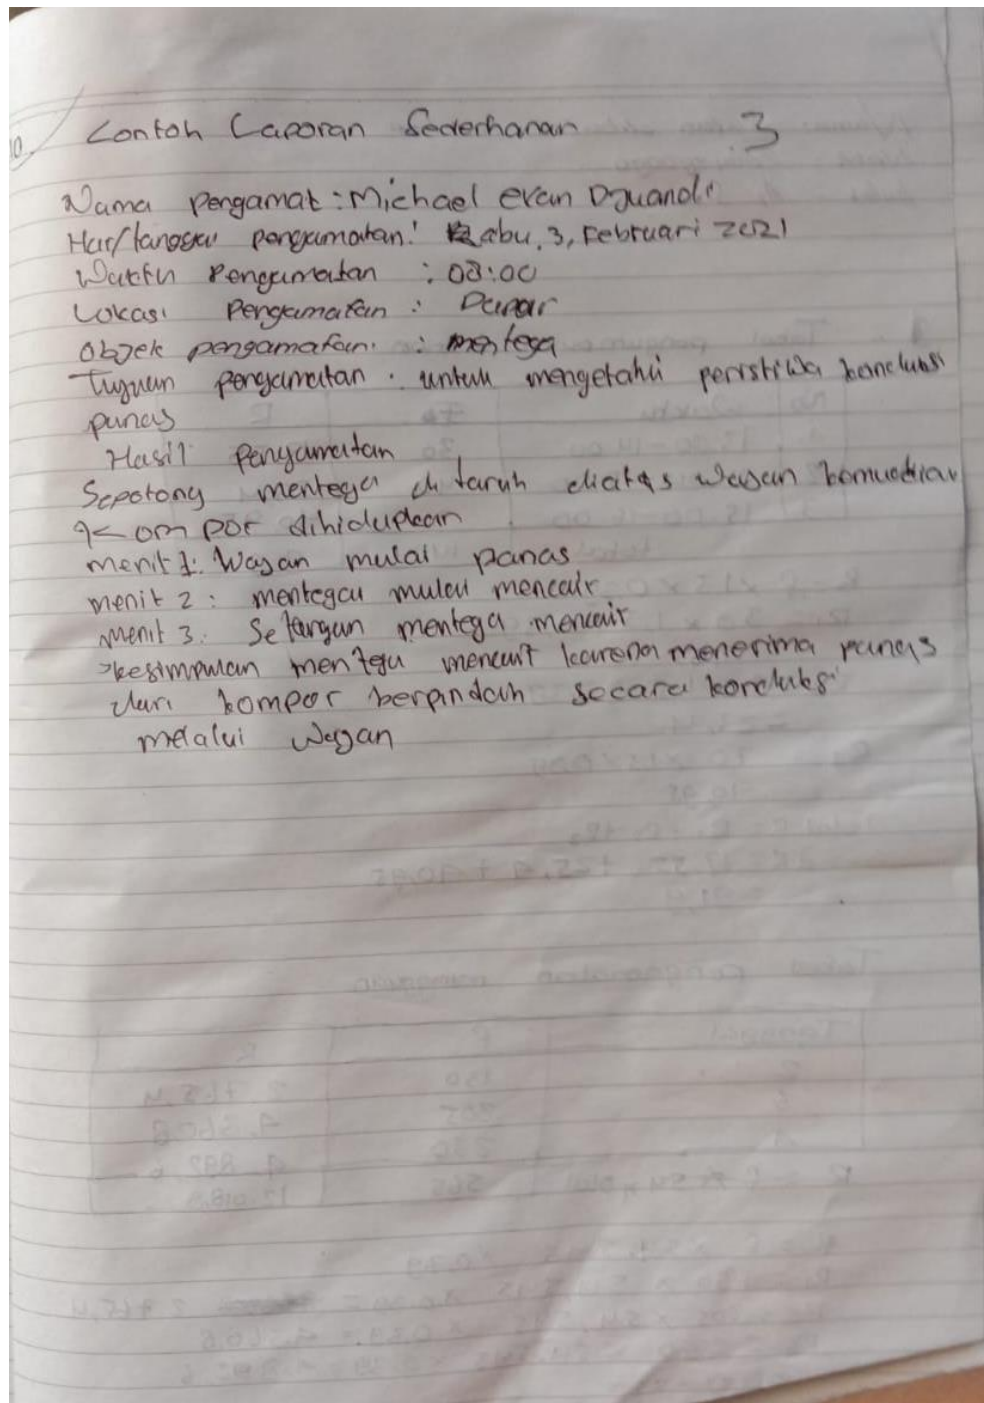 Contoh Laporan Sederhanan 3
Nama Pengamat : Michael evan
Hari/tanggal pengamatan : Rabu, 3, Februari 2021
Waktu Pengamatan : 08:00
Lokasi Pengamatan : Dapur
Objek pengamatan : mentega
Tujuan pengamatan : untuk mengetahui peristiwa konduksi
panas
Hasil Pengamatan
Sepotong mentega di taruh diatas wajan kemudian
Kompor dihidupkan
menit 1: Wajan mulai panas
menit 2 : mentega mulai mencair
menit 3 : mentega mencair
kesimpulan mentega mencair karena menerima panas
dari kompor berpindah secara konduksi
melalui wajan